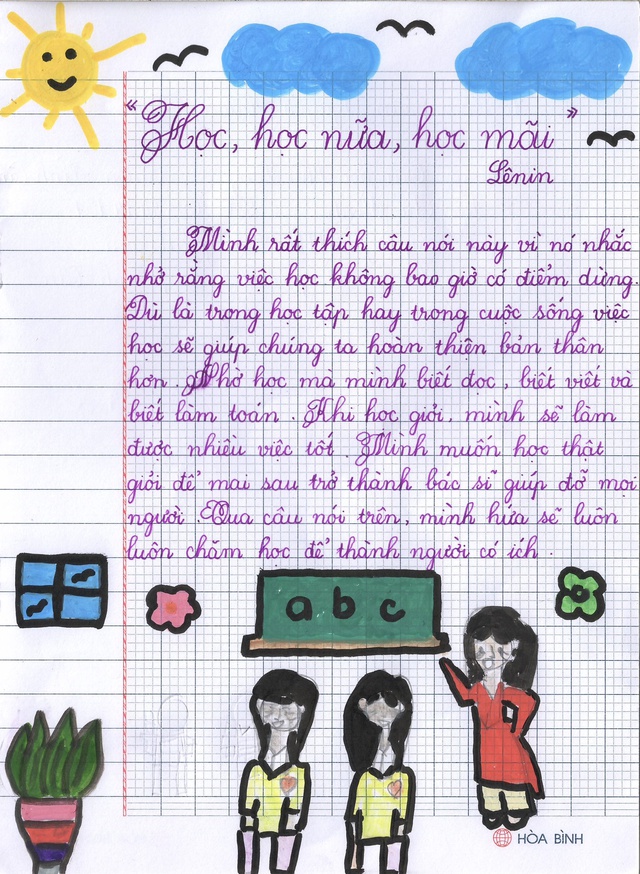 "Học, học nữa, học mãi"
Lênin
Mình rất thích câu nói này vì nó nhắc
nhở rằng việc học không bao giờ có điểm dừng.
Dù là trong học tập hay trong cuộc sống việc
học sẽ giúp chúng ta hoàn thiện bản thân
hơn. Nhờ học mà mình biết đọc, biết viết và
biết làm toán. Khi học giỏi, mình sẽ làm
được nhiều việc tốt. Mình muốn học thật
giỏi để mai sau trở thành bác sĩ giúp đỡ mọi
người. Qua câu nói trên, mình hứa sẽ luôn
luôn chăm học để thành người có ích.
a b c
HÒA BÌNH